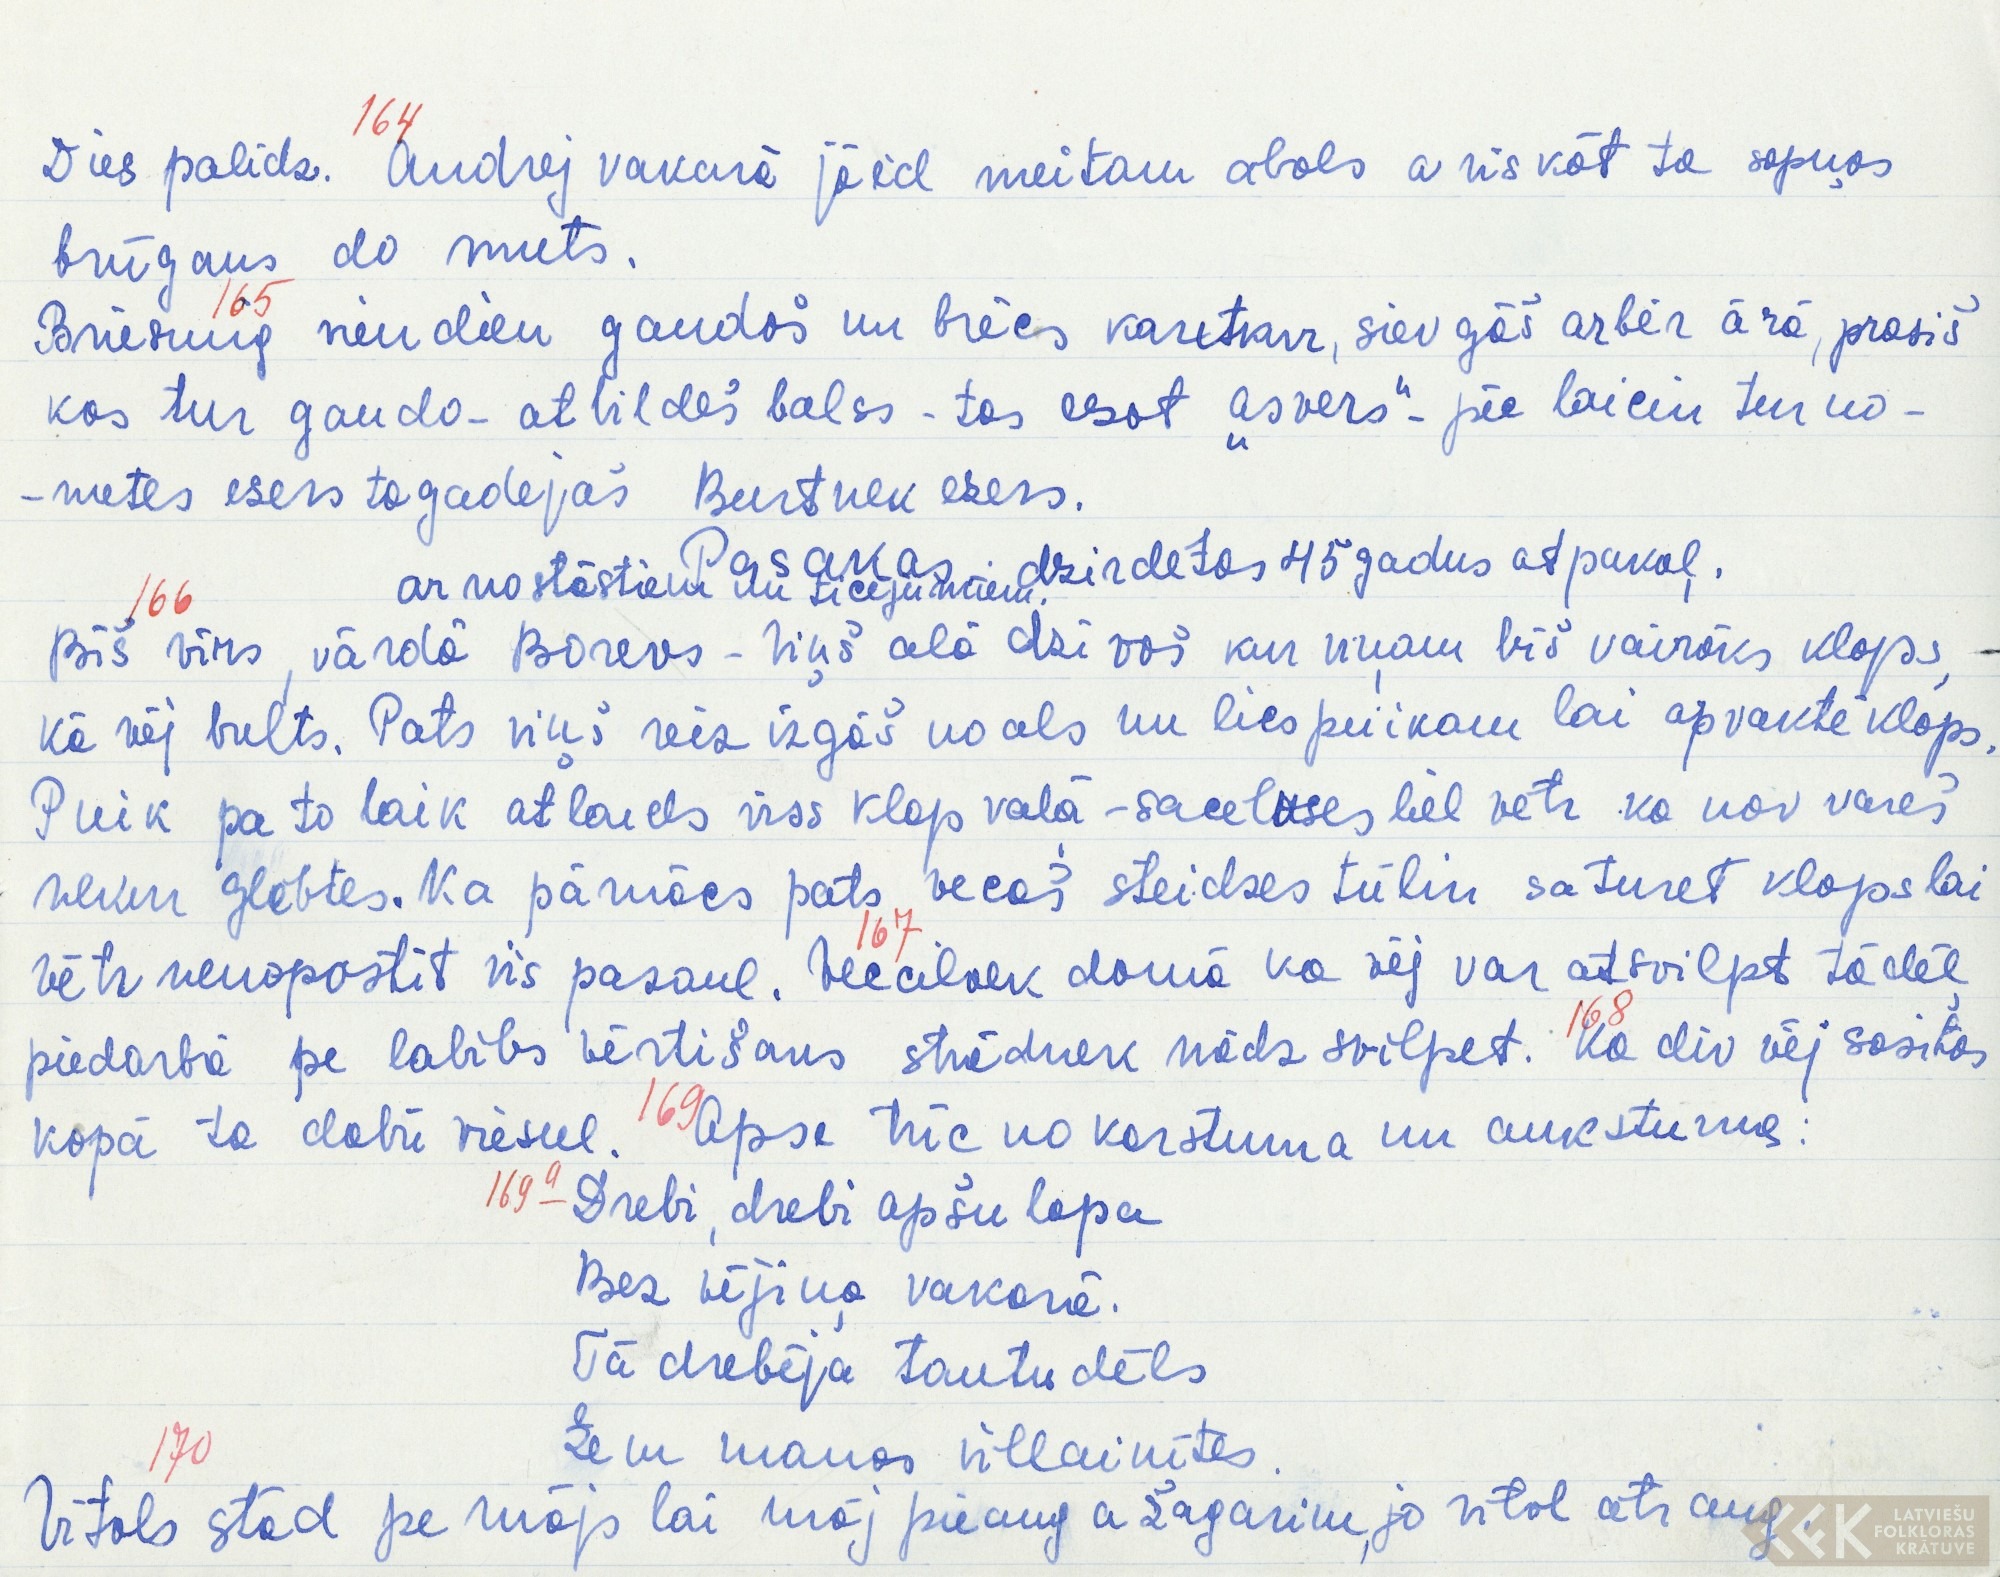 164
Dies palīdz. Andrej vakarā jāēd meitam abols a viskāt ta sapņos
brūgans do muts.
165
Briesmīg vien dien gaudoš un brēcs kautkur, siev gāš arbēr ārā, prasiš
kas tur gaudo - atbildeš balss - tas esot „asvers" - pēc laiciņ tur no-
-metes esers tagadejaš Burtnek ezers.
Pasakas, dzirdetas 45 gadus atpakaļ.
ar nostāstiem un ticējumiem.
166
Biš virs, vārdā Borevs - viņš alā dzivoš kur viņam biš vairāks klaps,
kā vēj bults. Pats viņš reiz izgāš no als un lics puikam lai apvaktē klaps.
Puik pa to laik atlaids viss klap vaļā - saceluses liēl vētr ka nav vareš
nekur glābtes. Ka pārnācs pats vecaš steidzes tūlin saturet klaps lai
167
vētr nenopostīt vis pasaul. Veccilvek domā ka vēj var atsvilpt tādēļ
168
piedarbā pe labibs vērtišans strādnek mādz svilpet. Ka div vēj sasitas
kopā ta dabū viesul. 169 Apse trīc no karstuma un aukstuma:
169a Drebi, drebi apšu lapa
Bez vējiņa vakarā.
Tā drebēja tautu dēls
Zem manas villainītes.
170
Vītols stād pe mājs lai māj pieaug a žagarim, jo vītol ātr aug.
LATVIEŠU
FOLKLORAS
KRĀTUVE